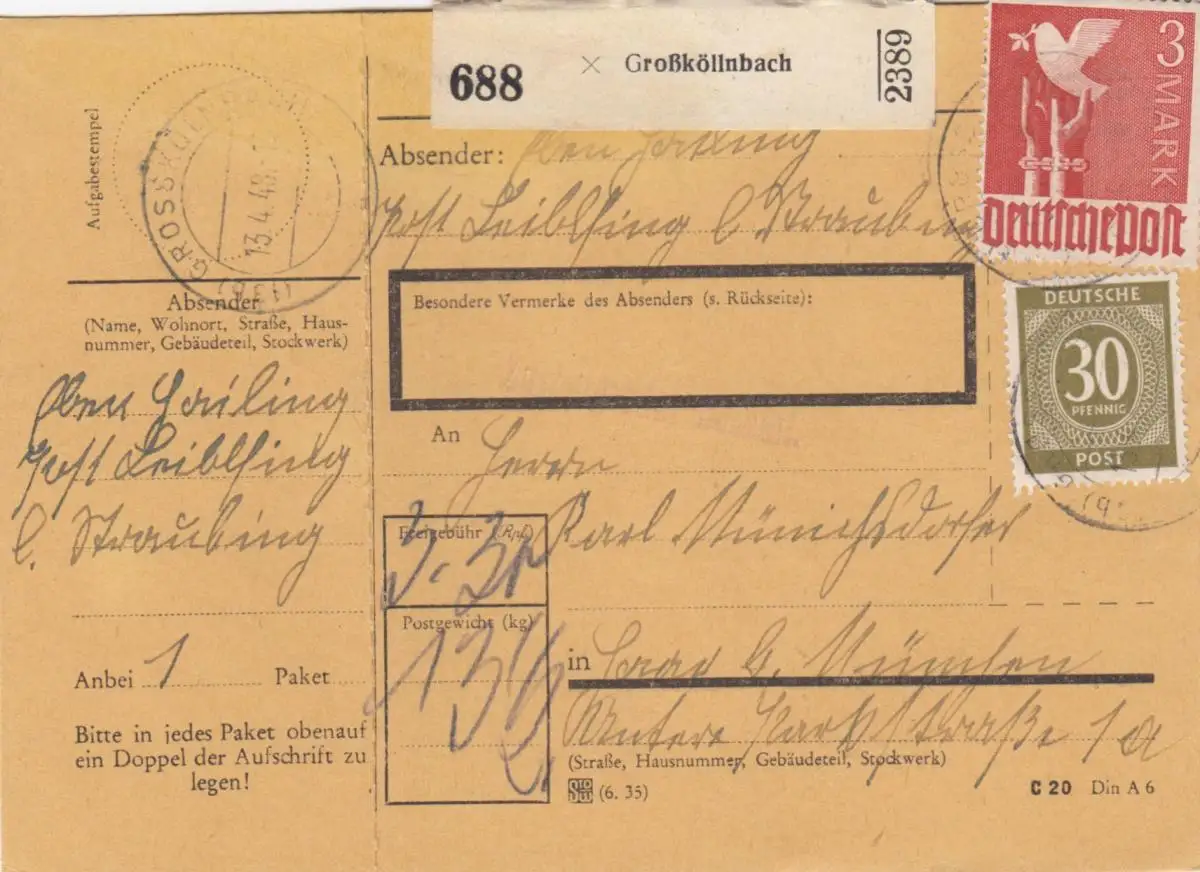 688 × Großköllnbach 2389
3 MARK
Deutsche Post
DEUTSCHE
30
PFENNIG
POST
Aufgabestempel
(13b) GROSSKÖLLNBACH
13.4.48
Absender:
Post Leiblfing b. Straubing
Besondere Vermerke des Absenders (s. Rückseite):
Absender
(Name, Wohnort, Straße, Haus-
nummer, Gebäudeteil, Stockwerk)
Ober Hailing
Post Leiblfing
b. Straubing
Anbei 1 Paket
Bitte in jedes Paket obenauf
ein Doppel der Aufschrift zu
legen!
An Herrn
Karl Münichsdorfer
Freigebühr (Rpf)
3.30
Postgewicht (kg)
13
in Haar b. München
Untere Parkstraße 1a
(Straße, Hausnummer, Gebäudeteil, Stockwerk)
(6. 35)
C 20 Din A 6